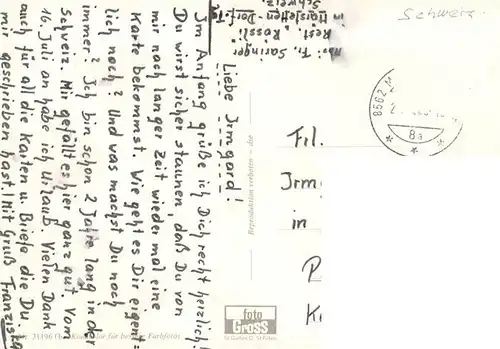 Schweiz.
Abs: Fr. Saringer
Rest. „Rössli"
in Marstetten-Dorf TG
Schweiz.
Liebe Irmgard!
Im Anfang grüße ich Dich recht herzlich!
Du wirst sicher staunen, daß Du von
mir nach langer Zeit wieder mal eine
Karte bekommst. Wie geht es Dir eigent=
lich noch? Und was machst Du noch
immer? Ich bin schon 2 Jahre lang in der
Schweiz. Mir gefällt es hier ganz gut. Vom
16. Juli an habe ich Urlaub. Vielen Dank
auch für all die Karten u. Briefe die Du
mir geschrieben hast! Mit Gruß Franzi
Reproduktion verboten
8562 M
8a
Frl.
Irm
in
P
K
foto
GROSS
St. Gallen
für Farbfotos